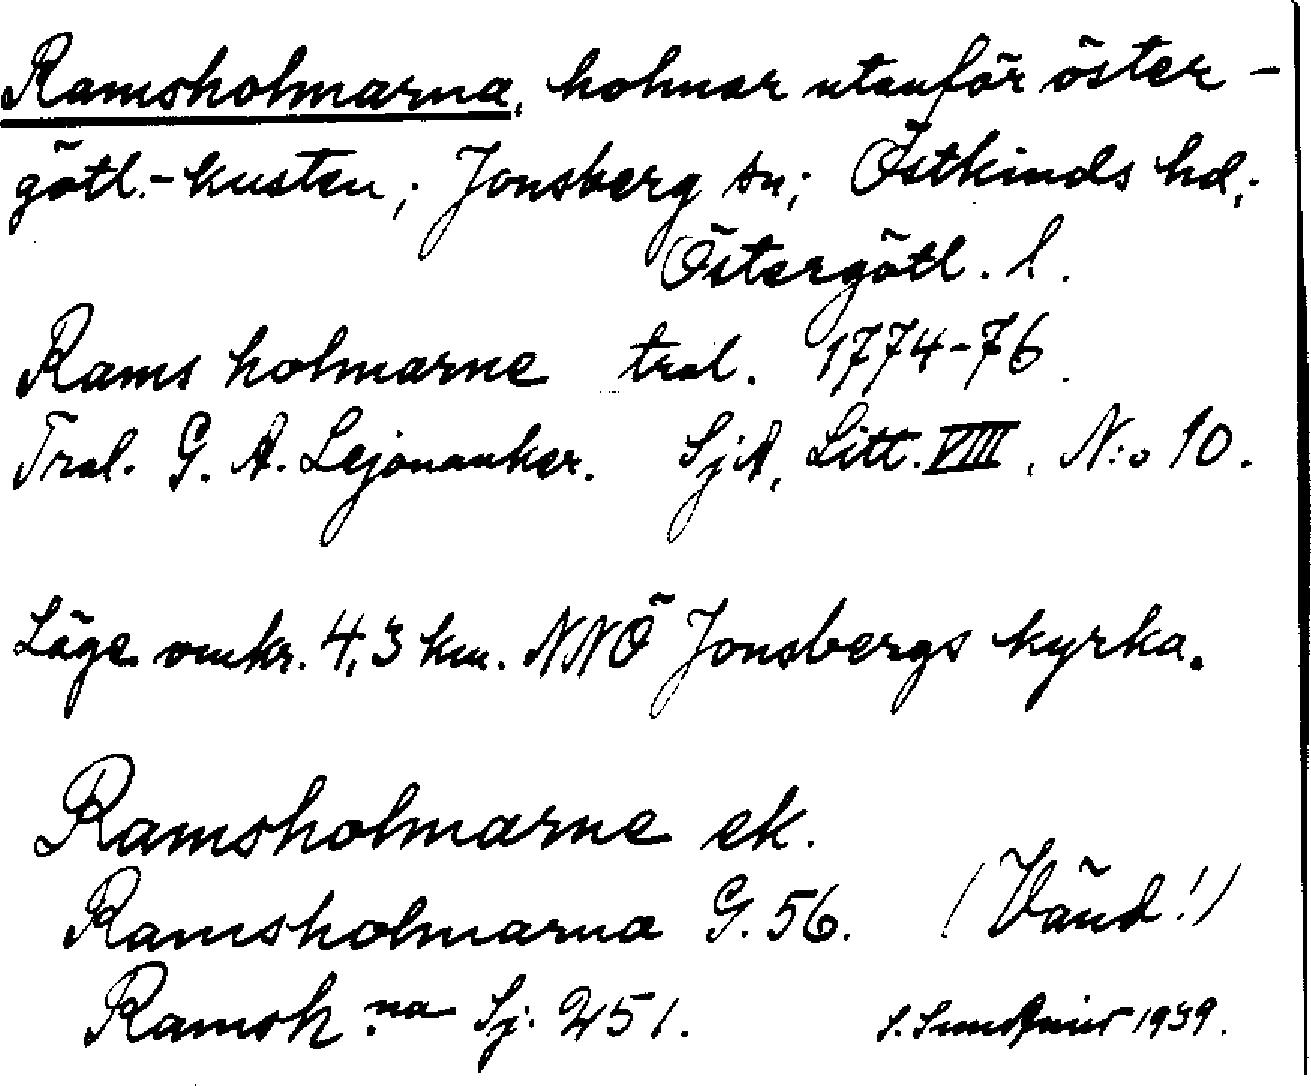 Ramsholmarna, holmar utanför öster-
götl.-kusten; Jonsberg sn; Östkinds hd;
Östergötl. l.
Rams holmarne tral. 1774-76.
Tral. G. A. Lejonanker. SjA, Litt. VIII, N:o 10.
Läge omkr. 4,3 km. NNÖ Jonsbergs kyrka.
Ramsholmarne ek.
Ramsholmarna G. 56. (Vänd!)
Ramsh:na Sj. 251. 1939.